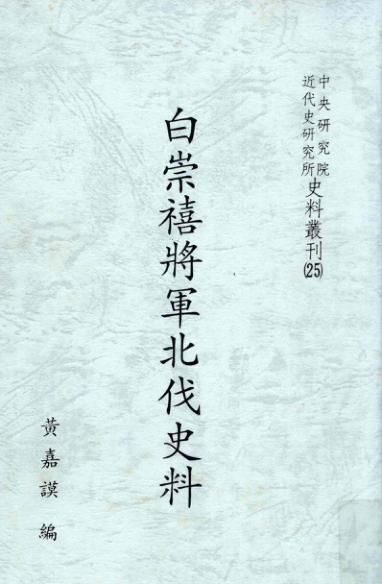 中央研究院
近代史研究所
史料叢刊(25)
白崇禧將軍北伐史料
黃嘉謨 編